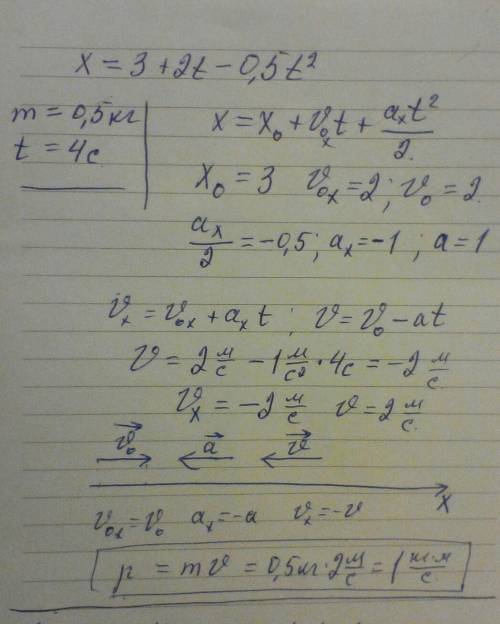 x = 3 + 2t - 0,5t²
m = 0,5 кг
t = 4с
x = x₀ + v₀ₓt + aₓt²/2
x₀ = 3 v₀ₓ = 2; v₀ = 2
aₓ/2 = -0,5; aₓ = -1; a = 1
vₓ = v₀ₓ + aₓt; v = v₀ - at
v = 2 м/с - 1 м/с² · 4с = -2 м/с
vₓ = -2 м/с v = 2 м/с
v₀ a v
x
v₀ₓ = v₀ aₓ = -a vₓ = -v
p = mv = 0,5 кг · 2 м/с = 1 кг·м/с